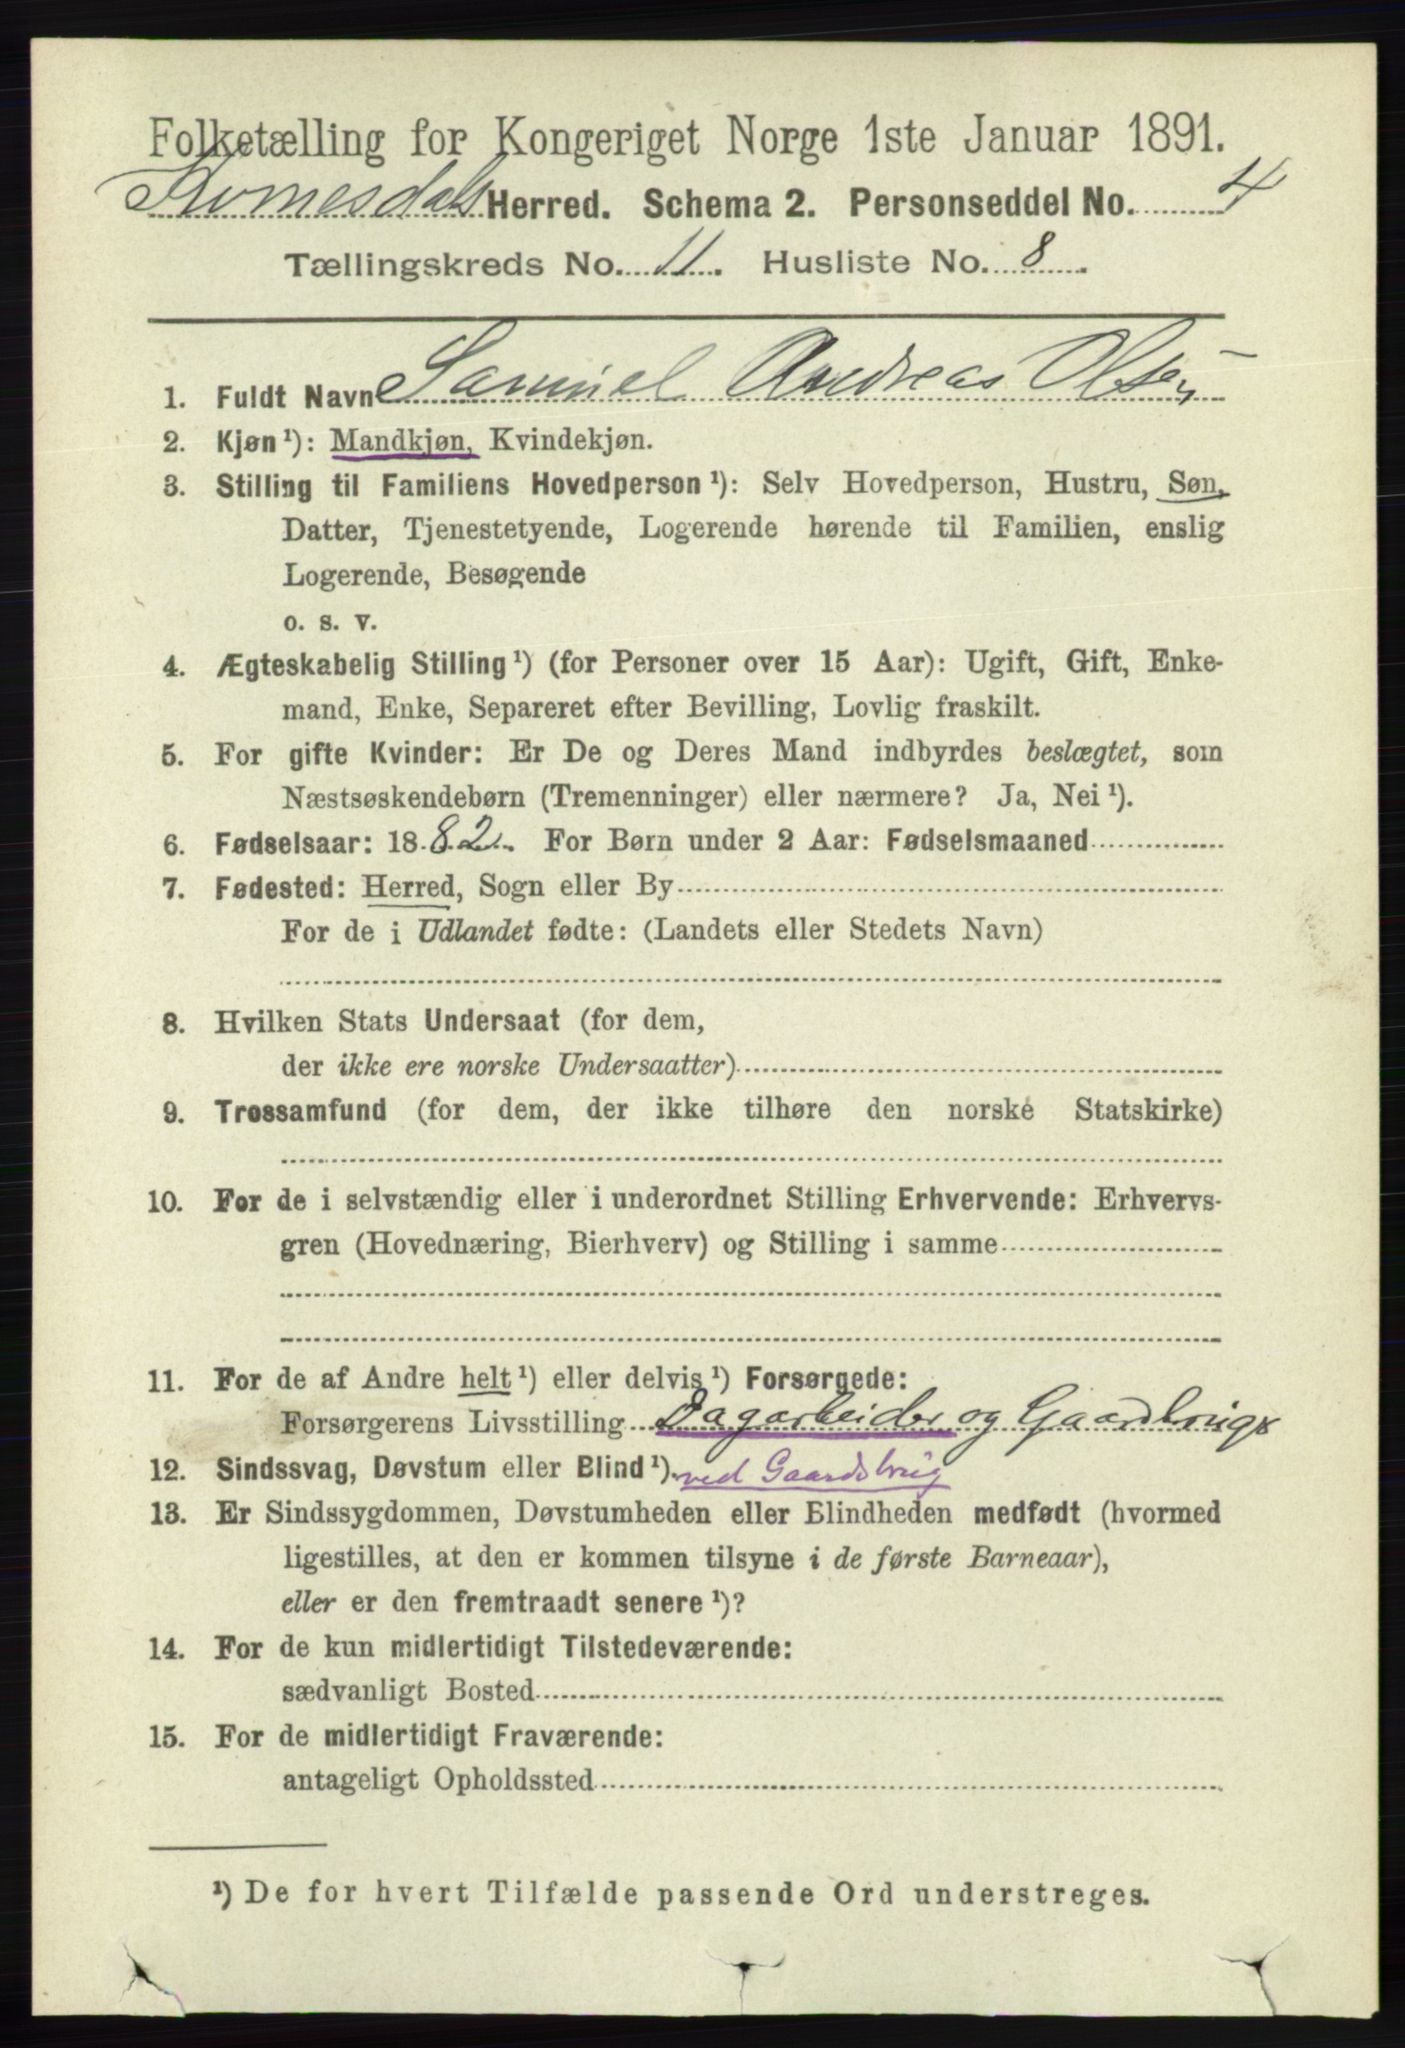 Folketælling for Kongeriget Norge 1ste Januar 1891.
Herred. Schema 2. Personseddel No. 4
Tællingskreds No. 11. Husliste No. 8.
1. Fuldt Navn Samuel Andreas Olsen
2. Kjøn¹): Mandkjøn, Kvindekjøn.
3. Stilling til Familiens Hovedperson¹): Selv Hovedperson, Hustru, Søn,
Datter, Tjenestetyende, Logerende hørende til Familien, enslig
Logerende, Besøgende
o. s. v.
4. Ægteskabelig Stilling¹) (for Personer over 15 Aar): Ugift, Gift, Enke-
mand, Enke, Separeret efter Bevilling, Lovlig fraskilt.
5. For gifte Kvinder: Er De og Deres Mand indbyrdes beslægtet, som
Næstsøskendebørn (Tremenninger) eller nærmere? Ja, Nei¹).
6. Fødselsaar: 1882. For Børn under 2 Aar: Fødselsmaaned
7. Fødested: Herred, Sogn eller By
For de i Udlandet fødte: (Landets eller Stedets Navn)
8. Hvilken Stats Undersaat (for dem,
der ikke ere norske Undersaatter)
9. Trossamfund (for dem, der ikke tilhøre den norske Statskirke)
10. For de i selvstændig eller i underordnet Stilling Erhvervende: Erhvervs-
gren (Hovednæring, Bierhverv) og Stilling i samme
11. For de af Andre helt¹) eller delvis¹) Forsørgede:
Forsørgerens Livsstilling Dagarbeider og Gaardbrug
12. Sindssvag, Døvstum eller Blind¹). ved Gaardsbrug
13. Er Sindssygdommen, Døvstumheden eller Blindheden medfødt (hvormed
ligestilles, at den er kommen tilsyne i de første Barneaar),
eller er den fremtraadt senere¹)?
14. For de kun midlertidigt Tilstedeværende:
sædvanligt Bosted
15. For de midlertidigt Fraværende:
antageligt Opholdssted
¹) De for hvert Tilfælde passende Ord understreges.